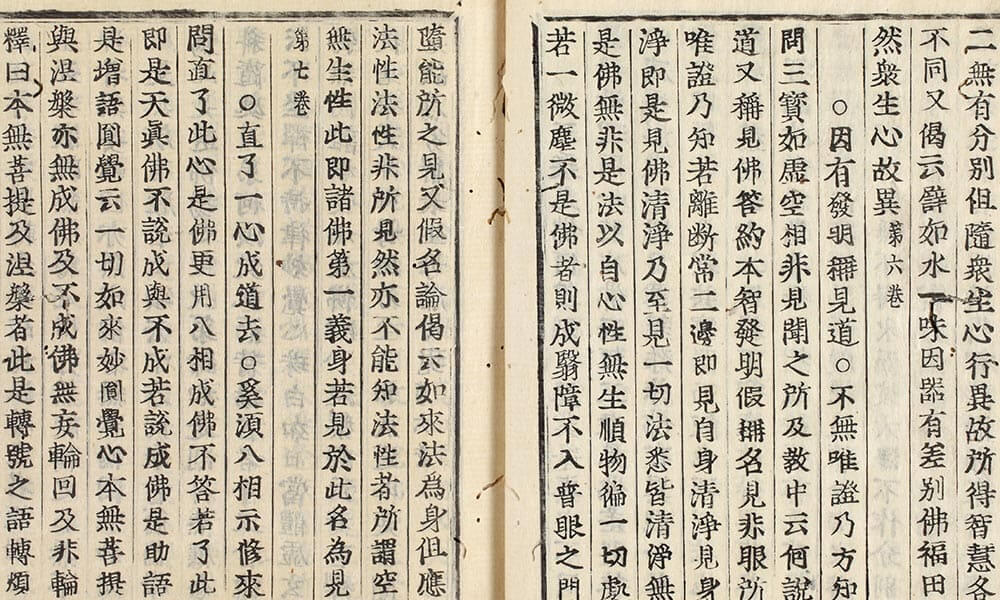 二無有分別但隨衆生心行異故所得智慧各
不同又偈云譬如水一味因器有差别佛福田
然衆生心故異 第六卷
○因有發明稱見道○不無唯證乃方知
問三寶如虛空相非見聞之所及敎中云何說
道又稱見佛答約本智發明假稱名見非眼所
唯證乃知若離斷常二邊即見自身清淨見身
淨即是見佛清淨乃至見一切法悉皆清淨無
是佛無非是法以自心性無生順物徧一切處
若一微塵不是佛者則成翳障不入普眼之門
墮能所之見又假名論偈云如來法爲身但應
法性法性非所見然亦不能知法性者所謂空
無生性此即諸佛第一義身若見於此名為見
第七卷
○直了一心成道去○奚湏八相示修來
問直了此心是佛更用八相成佛不答若了此
即是天眞佛不說成與不成若說成佛是助語
是增語圎覺云一切如來妙圎覺心本無菩提
與涅槃亦無成佛及不成佛無妄輪回及非輪
釋曰本無菩提及涅槃者此是轉號之語轉煩